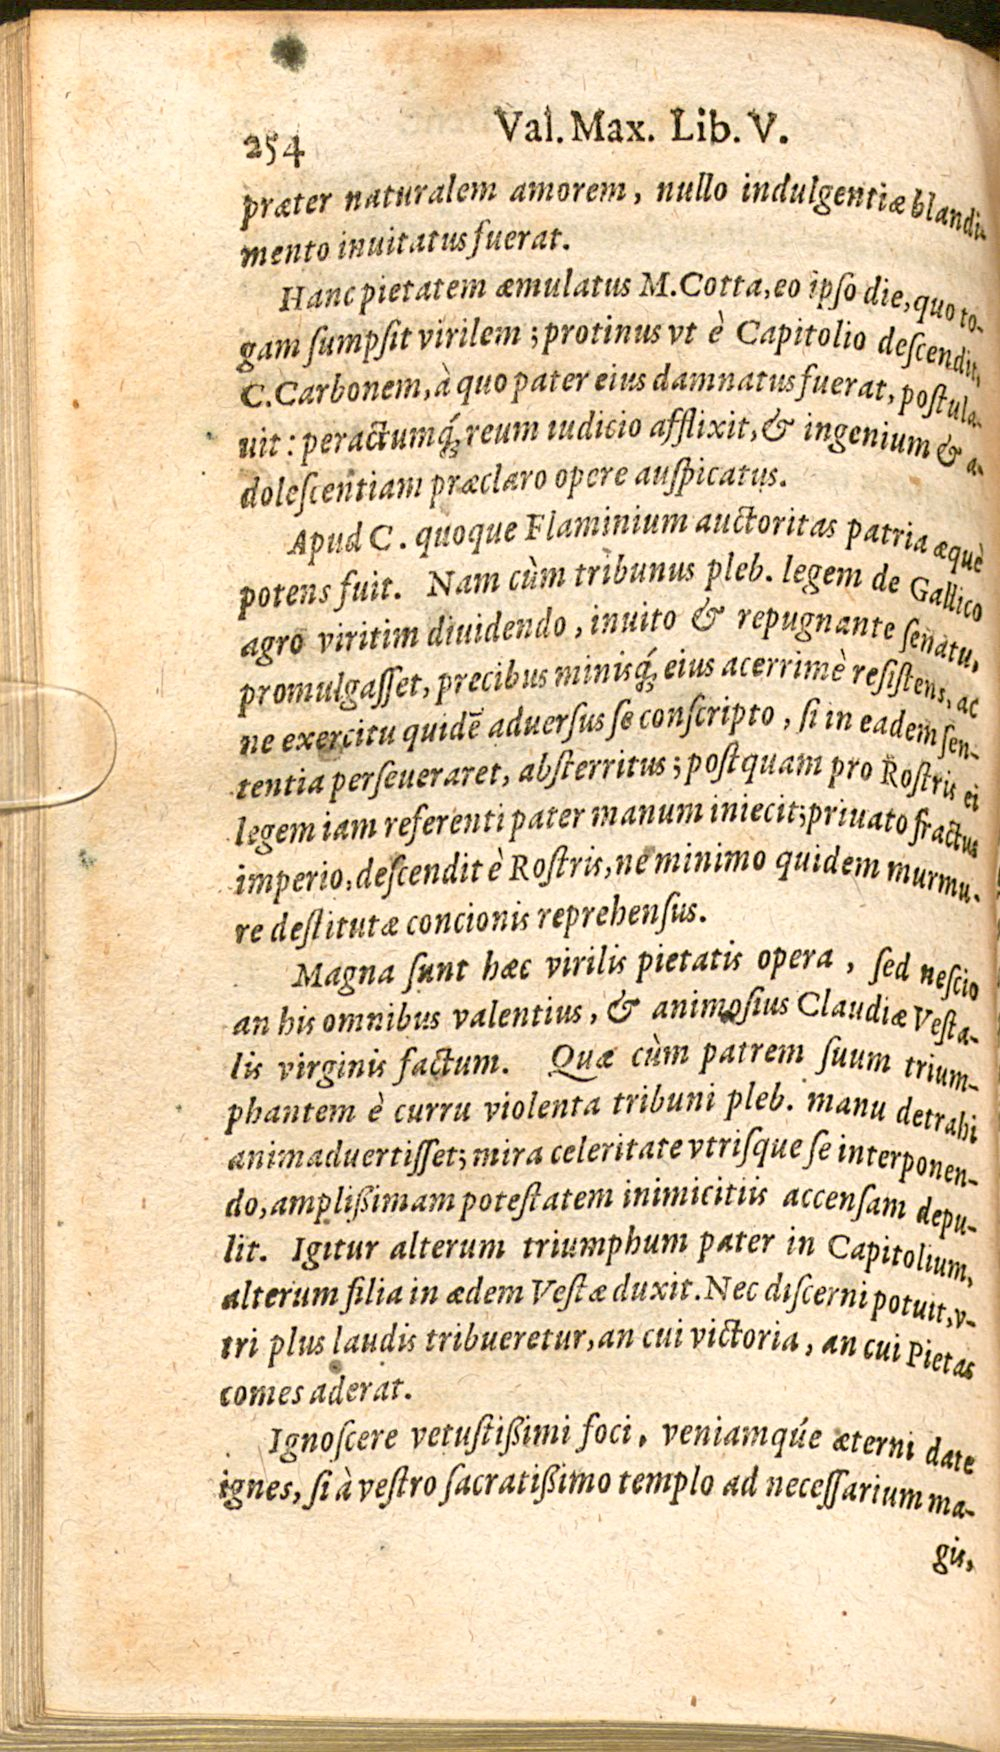 254 Val. Max. Lib. V.
præter naturalem amorem, nullo indulgentiæ blandi-
mento inuitatus fuerat.
Hanc pietatem æmulatus M. Cotta, eo ipſo die, quo to-
gam ſumpſit virilem; protinus vt è Capitolio deſcendit,
C. Carbonem, à quo pater eius damnatus fuerat, poſtula-
uit: peractumq́; reum iudicio afflixit, & ingenium & a-
doleſcentiam præclaro opere auſpicatus.
Apud C. quoque Flaminium auctoritas patria æquè
potens fuit. Nam cùm tribunus pleb. legem de Gallico
agro viritim diuidendo, inuito & repugnante ſenatu,
promulgaſſet, precibus minisq́; eius acerrimè reſiſtens, ac
ne exercitu quidē aduerſus ſe conſcripto, ſi in eadem ſen-
tentia perſeueraret, abſterritus; poſtquam pro Roſtris ei
legem iam referenti pater manum iniecit; priuato fractus
imperio, deſcendit è Roſtris, ne minimo quidem murmu-
re deſtitutæ concionis reprehenſus.
Magna ſunt hæc virilis pietatis opera, ſed neſcio
an his omnibus valentius, & animoſius Claudiæ Veſta-
lis virginis factum. Quæ cùm patrem ſuum trium-
phantem è curru violenta tribuni pleb. manu detrahi
animaduertiſſet; mira celeritate vtriſque ſe interponen-
do, ampliſſimam poteſtatem inimicitiis accenſam depu-
lit. Igitur alterum triumphum pater in Capitolium,
alterum filia in ædem Veſtæ duxit. Nec diſcerni potuit, v-
tri plus laudis tribueretur, an cui victoria, an cui Pietas
comes aderat.
Ignoſcere vetuſtißimi foci, veniamqúe æterni date
ignes, ſi à veſtro ſacratißimo templo ad neceſſarium ma-
gis,